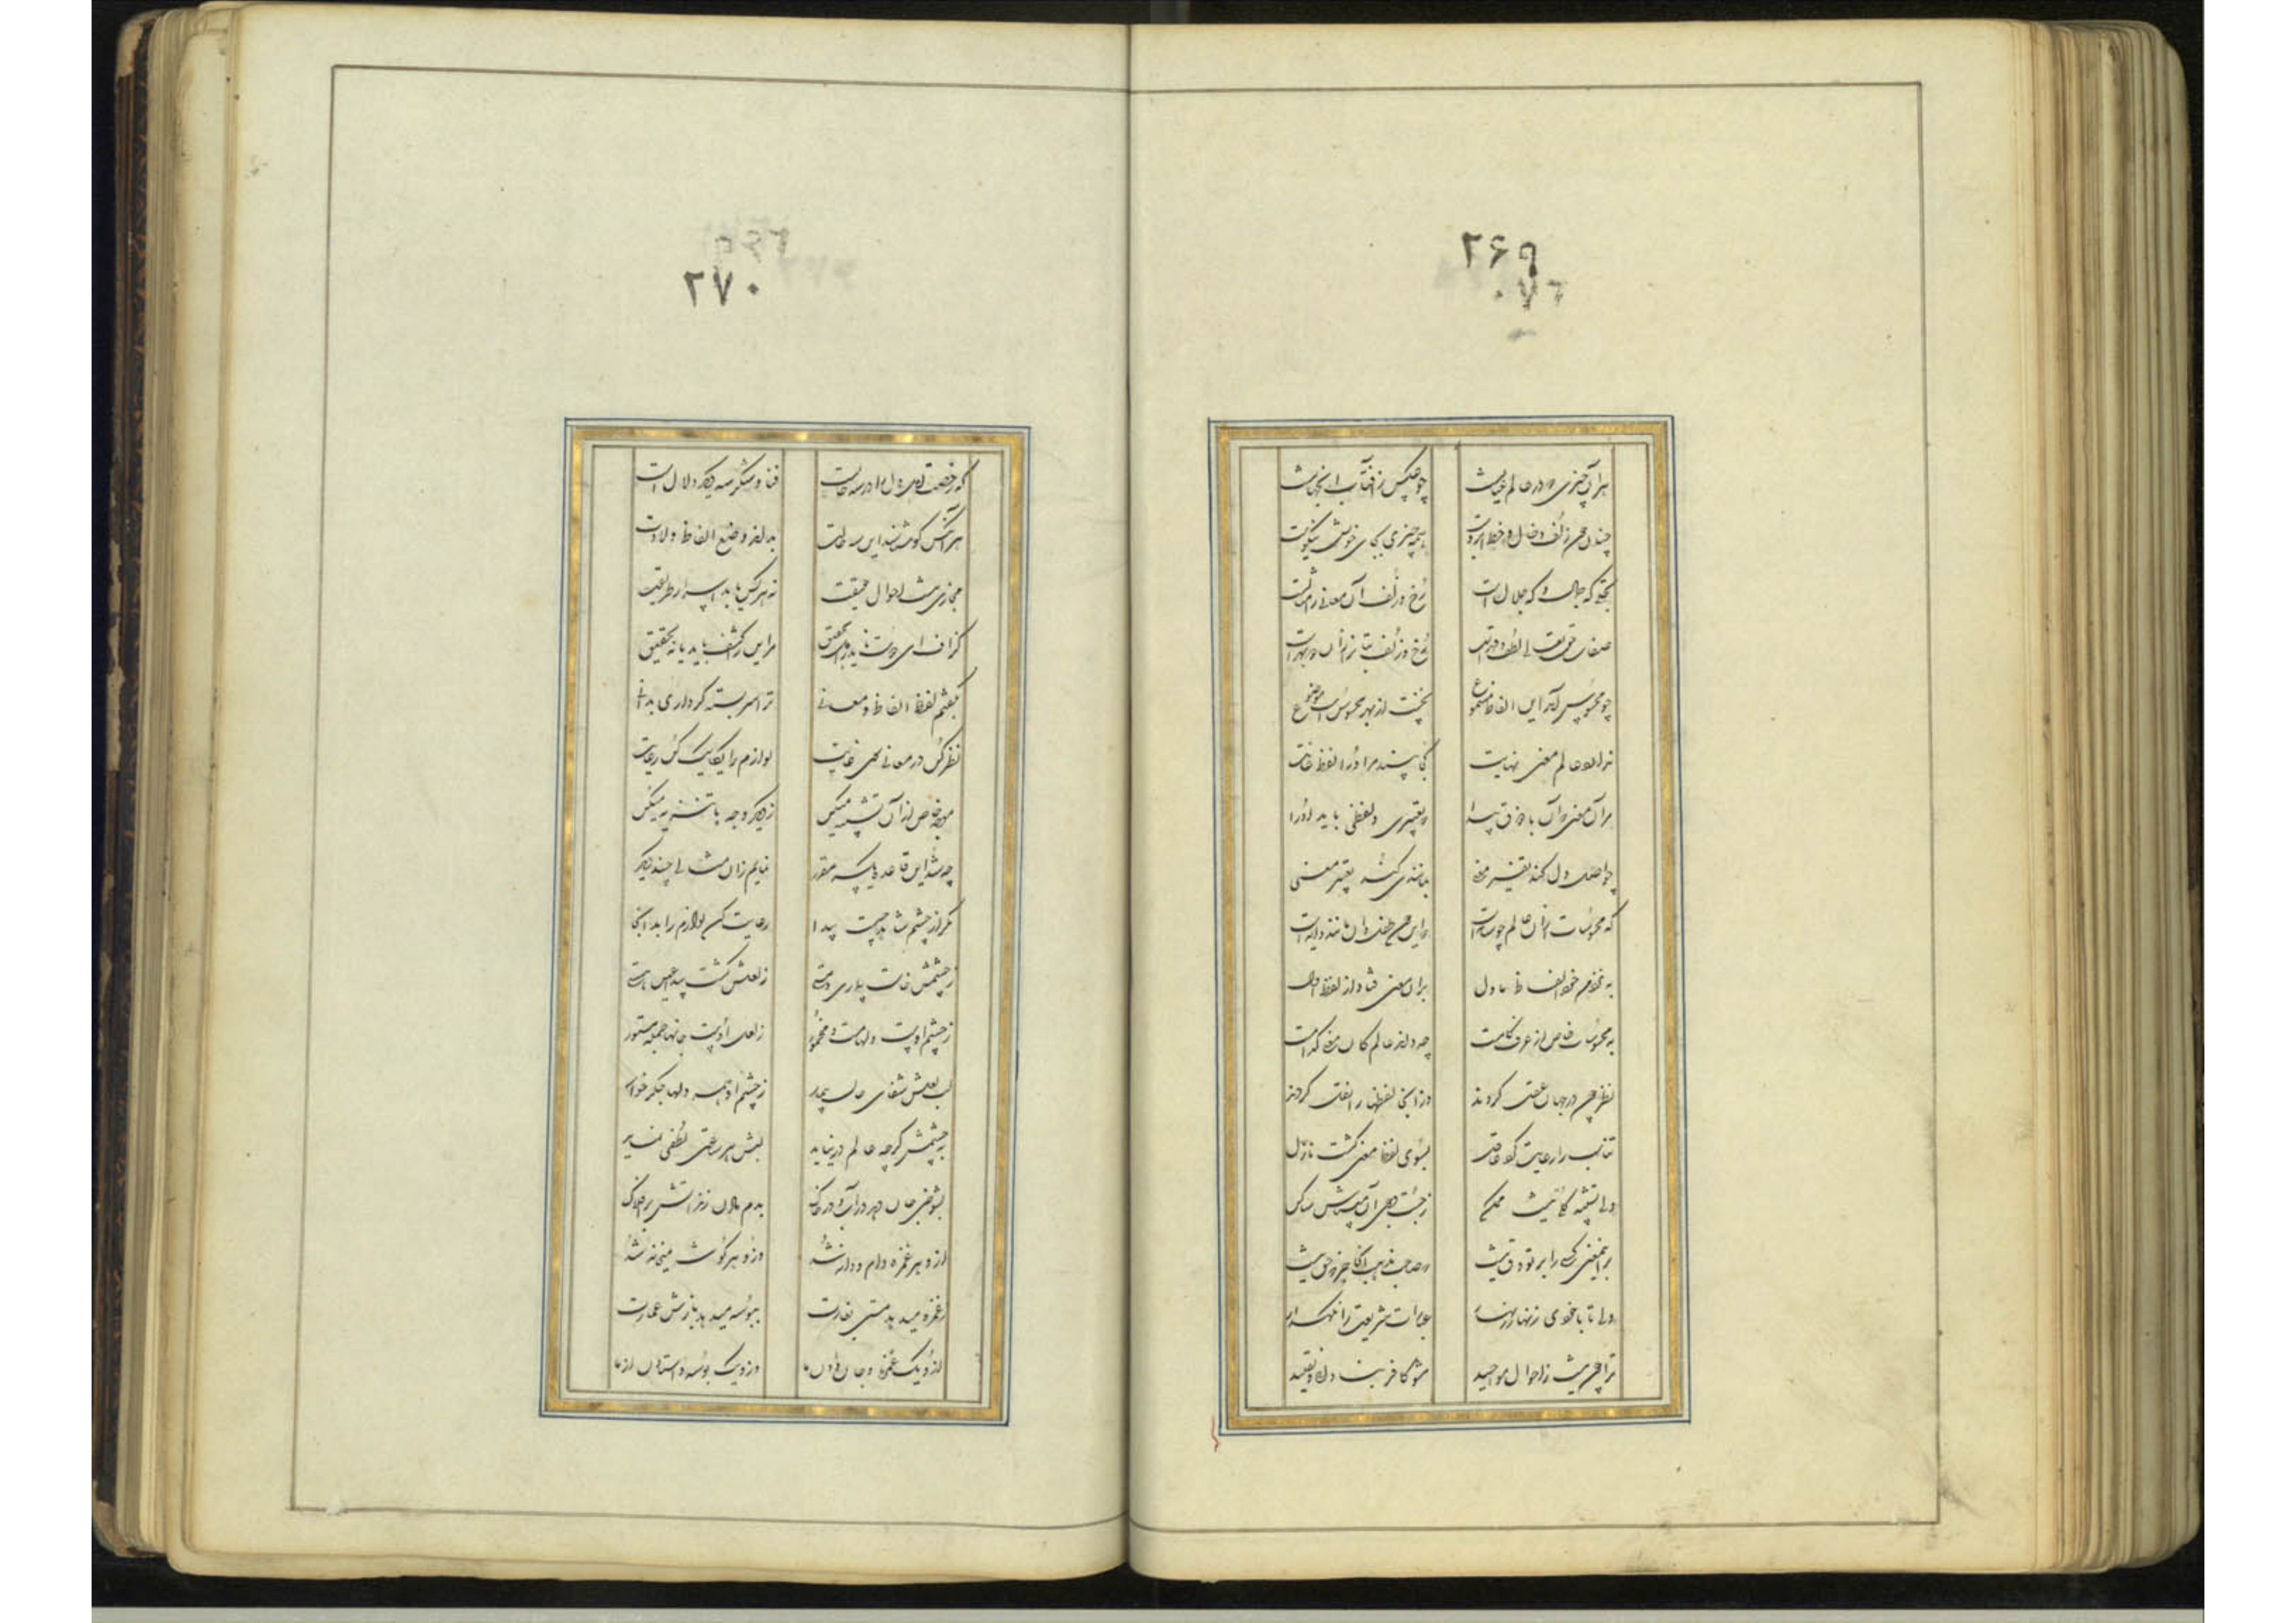 ۲۶۹
هر آن چیزی که در عالم عیانست چو عکسی ز آفتاب آن جهانست
جهان چون زلف و خال و خط و ابروست همه چیزی بجای خویش نیکوست
تجلی که جمال و که جلال است رخ و زلف آن معانی را مثالست
صفات حق تعالی لطف و قهر است رخ و زلف بتان را زان دو بهر است
چو محسوس آمد این الفاظ مسموع نخست از بهر محسوس است موضوع
ندارد عالم معنی نهایت کجا بیند مر او را لفظ غایت
هر آن معنی که آن با ذوق پیدا تعبیری و لفظی باید او را
چو اهل دل کند تفسیر معنی بمانندی کند تعبیر معنی
که محسوسات ازان عالم چو سایه است که این چون طفل و آن مانند دایه است
به نزد من خود الفاظ ماول بران معنی فتاد از لفظ اول
به محسوسات خاص از عرف عامست چه داند عالم کان معنی کدامست
نظر چون در جهان عقل کردند وزانجا لفظها را نقل کردند
تناسب را رعایت کرد عاقل بسوی لفظ معنی گشت نازل
ولی تشبیه کلی نیست ممکن ز جست و جوی آن میباش ساکن
برین معنی کسی را بر تو دق نیست که صاحب مذهب اینجا جز که حق نیست
ولی تا با خودی زنهار زنهار عبارات شریعت را نگهدار
ترا چون نیست احوال مواجید مشو کافر بنادانی و تقلید
۲۷۰
که رخصت اهل دل را در سه حالت فنا و سکر سه دیگر دلال است
هر آنکس کو شناسد این سه حالت بداند وضع الفاظ و دلالت
مجازی نیست احوال حقیقت نه هر کس یابد اسرار طریقت
گزاف ای دوست ناید ز اهل تحقیق مر این را کشف باید یا نه تحقیق
بگفتم لفظ الفاظ و معانی ترا سربسته گر داری بدانی
نظر کن در معانی سوی غایت لوازم را یکایک کن رعایت
بوجه خاص از آن تشبیه میکن ز دیگر وجه با تنزیه میکن
چو شد این قاعده یکسر مقرر نمایم زان مثالی چند دیگر
نگر از چشم شاهد چیست پیدا رعایت کن لوازم را بدانجا
ز چشمش خاست بیماری و مستی ز لعلش گشت پیدا عین هستی
ز چشم اوست دلها مست و مخمور ز لعل اوست جانها جمله مستور
لب لعلش شفای جان بیمار ز چشم او همه دلها جگر خوار
به چشمش گرچه عالم در نیاید لبش هر ساعتی لطفی نماید
بشوخی جان دمد در آب و در خاک بدم دادن زند آتش بر افلاک
ازو هر غمزه دام و دانه شد وزو هر گوشه میخانه شد
ز غمزه میدهد هستی بغارت ببوسه میدهد بازش عمارت
ازو یک غمزه و جان دادن ما وزو یک بوسه و استادن از ما